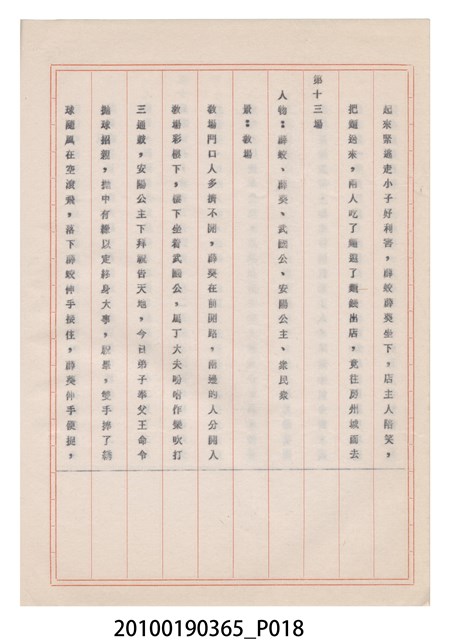 起來緊逃走小子好利害，薛蛟薛葵坐下，店主人陪笑，
把麵送來，兩人吃了麵還了麵錢出店，竟往房州城而去
第十三場
人物：薛蛟、薛葵、武國公、安陽公主、眾民眾
景：教場
教場門口人多擠不開，薛葵在前開路，兩邊的人分開入
教場彩樓下，樓下坐着武國公，馬丁大夫吩咐作樂吹打
三通鼓，安陽公主下拜祝告天地，今日弟子奉父王命令
拋球招親，擲中有緣以定終身大事，祝畢，雙手捧了綉
球隨風在空滾飛，落下薛蛟伸手接住，薛葵伸手便搶，
20100190365_P018